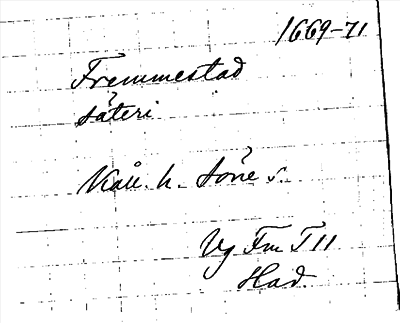 1669-71
Fremmestad
säteri
Kåll. h. Söne s.
Vg Fm T 11
Had.